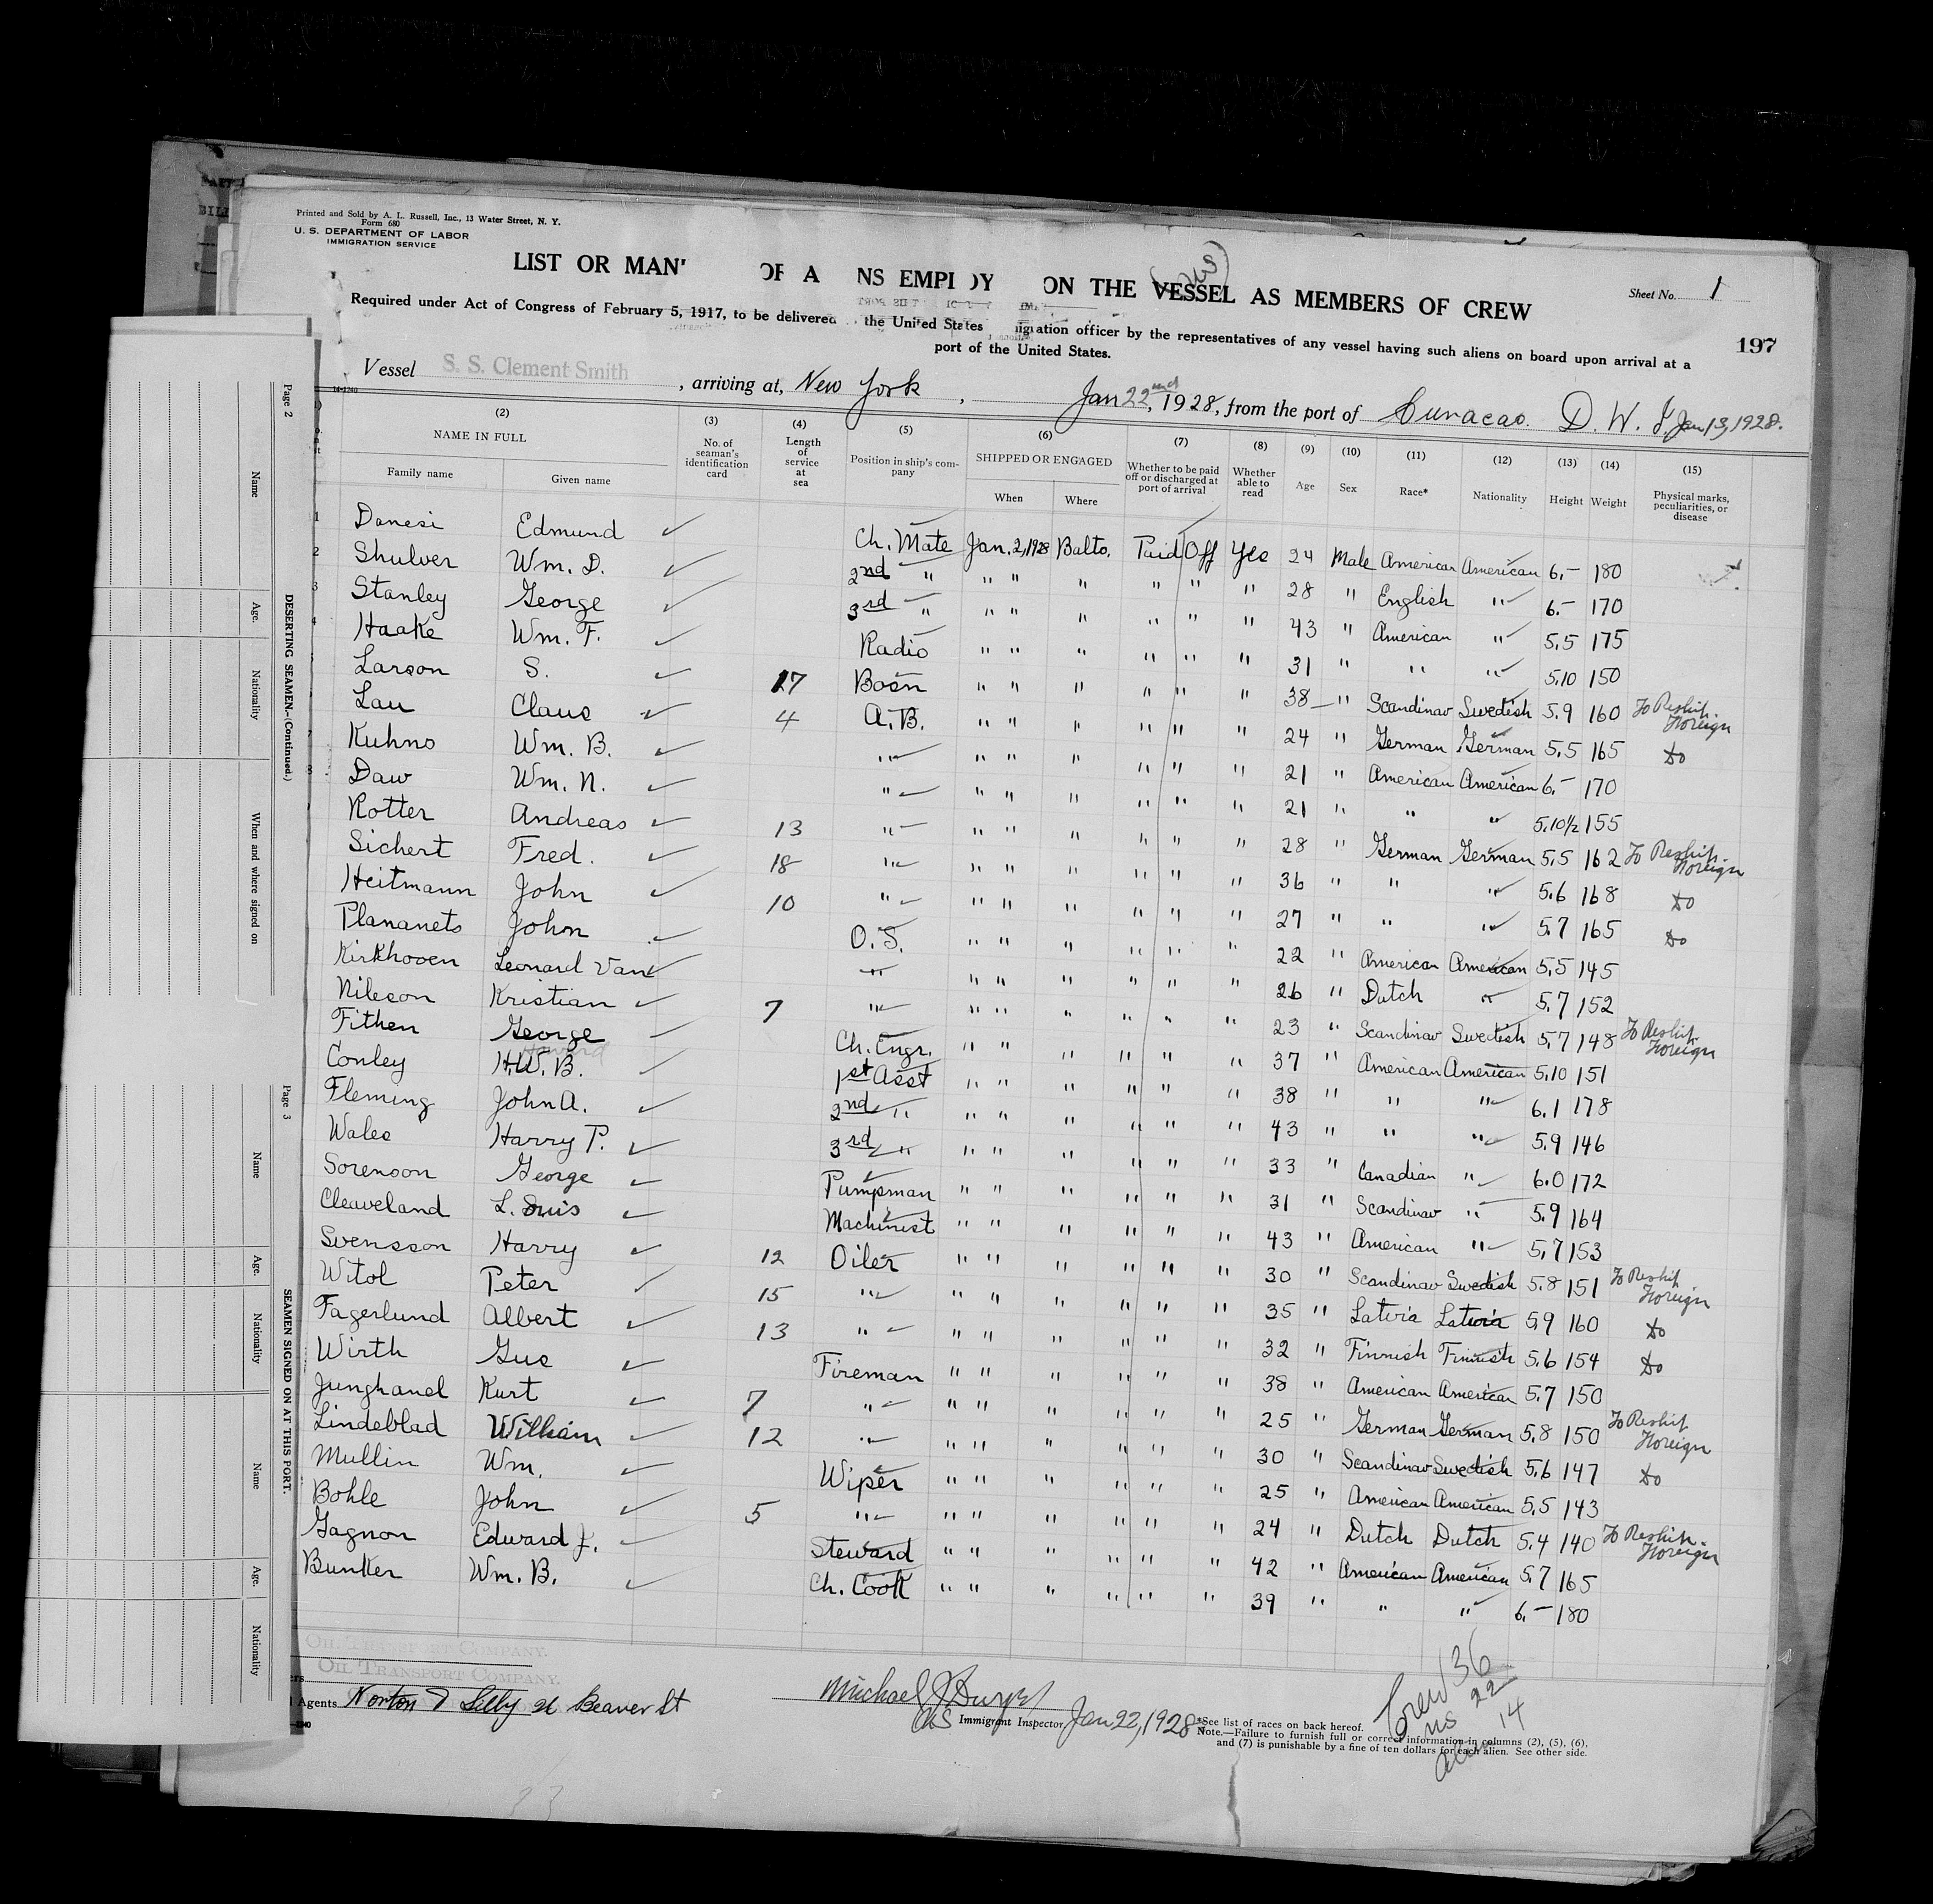 Printed and Sold by A. L. Russell, Inc., 13 Water Street, N. Y.
Form 680
U. S. DEPARTMENT OF LABOR
IMMIGRATION SERVICE
LIST OR MAN' OF A NS EMPLOY ON THE VESSEL AS MEMBERS OF CREW
Sheet No. 1
Required under Act of Congress of February 5, 1917, to be delivered the United States igration officer by the representatives of any vessel having such aliens on board upon arrival at a
port of the United States.
197
Vessel S. S. Clement Smith, arriving at, New York, Jan 22nd, 1928, from the port of Curacao. D. W. I. Jan 13, 1928.
(2) (3) (4) (5) (6) (7) (8) (9) (10) (11) (12) (13) (14) (15)
NAME IN FULL No. of seaman's identification card Length of service at sea Position in ship's company SHIPPED OR ENGAGED Whether to be paid off or discharged at port of arrival Whether able to read Age Sex Race* Nationality Height Weight Physical marks, peculiarities, or disease
Family name Given name When Where
1 Danesi Edmund Ch. Mate Jan. 2, 1928 Balto. Paid Off Yes 24 Male American American 6.- 180
2 Shulver Wm. D. 2nd " " " " " " " 28 " English " 6.- 170
3 Stanley George 3rd " " " " " " " 43 " American " 5.5 175
4 Haake Wm. F. Radio " " " " " " 31 " " " 5.10 150
Larson S. 17 Bosn " " " " " " 38 " Scandinav Swedish 5.9 160 To Reship Foreign
Lau Claus 4 A.B. " " " " " " 24 " German German 5.5 165 do
Kuhns Wm. B. " " " " " " " 21 " American American 6.- 170
8 Daw Wm. N. " " " " " " " 21 " " " 5.10½ 155
Rotter Andreas 13 " " " " " " " 28 " German German 5.5 162 To Reship Foreign
Sichert Fred. 18 " " " " " " " 36 " " " 5.6 168 do
Heitmann John 10 " " " " " " " 27 " " " 5.7 165 do
Plananets John O.S. " " " " " " 22 " American American 5.5 145
Kirkhoven Leonard Van " " " " " " " 26 " Dutch " 5.7 152
Nilsson Kristian 7 " " " " " " " 23 " Scandinav Swedish 5.7 148 To Reship Foreign
Fithen George Ch. Engr. " " " " " " 37 " American American 5.10 151
Conley H.W. B. 1st Asst " " " " " " 38 " " " 6.1 178
Fleming John A. 2nd " " " " " " " 43 " " " 5.9 146
Wales Harry P. 3rd " " " " " " " 33 " Canadian " 6.0 172
Sorenson George Pumpman " " " " " " 31 " Scandinav " 5.9 164
Cleaveland L. Ouis Machinist " " " " " " 43 " American " 5.7 153
Svensson Harry 12 Oiler " " " " " " 30 " Scandinav Swedish 5.8 151 To Reship Foreign
Witol Peter 15 " " " " " " " 35 " Latvia Latvia 5.9 160 do
Fagerlund Albert 13 " " " " " " " 32 " Finnish Finnish 5.6 154 do
Wirth Gus Fireman " " " " " " 38 " American American 5.7 150
Junghanel Kurt 7 " " " " " " " 25 " German German 5.8 150 To Reship Foreign
Lindeblad William 12 " " " " " " " 30 " Scandinav Swedish 5.6 147 do
Mullin Wm. Wiper " " " " " " 25 " American American 5.5 143
Bohle John 5 " " " " " " " 24 " Dutch Dutch 5.4 140 To Reship Foreign
Gagnon Edward J. Steward " " " " " " 42 " American American 5.7 165
Bunker Wm. B. Ch. Cook " " " " " " 39 " " " 6.- 180
OIL TRANSPORT COMPANY.
OIL TRANSPORT COMPANY.
Agents Norton & Lilly 26 Beaver St
Immigrant Inspector Jan 22, 1928
*See list of races on back hereof.
Note.—Failure to furnish full or correct information in columns (2), (5), (6),
and (7) is punishable by a fine of ten dollars for each alien. See other side.
Crew 36
US 22
Alien 14
Page 2
DESERTING SEAMEN.—(Continued.)
Name
Age.
Nationality
When and where signed on
Page 3
SEAMEN SIGNED ON AT THIS PORT.
Name
Age.
Nationality
Name
Age.
Nationality